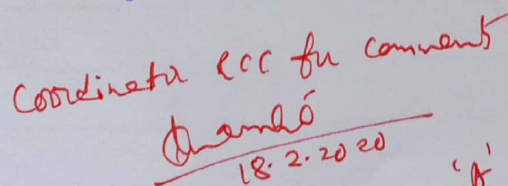 Coordinator ECC for comments
18.2.2020
'A'